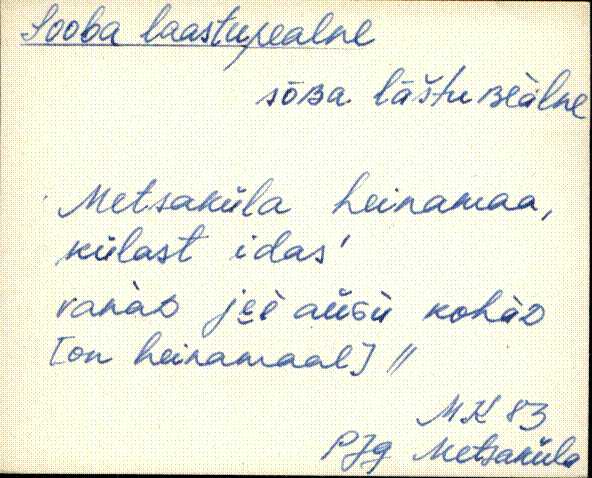 Sooba laastupealne
sōʙa lāštuʙèàlne
Metsaküla heinamaa,
külast idas'
vanàᴅ jɛè aùsù kohàᴅ
[on heinamaal] //
MK 83
PJg Metsaküla